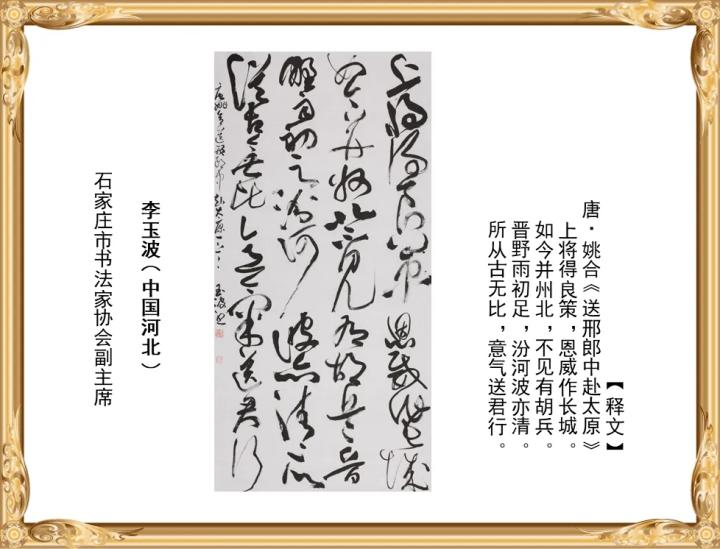 【释文】
唐·姚合《送邢郎中赴太原》
上将得良策，恩威作长城。
如今并州北，不见有胡兵。
晋野雨初足，汾河波亦清。
所从古无比，意气送君行。
上將得良策恩威作長城
如今并州北不見有胡兵晉
野雨初足汾河波亦清所
從古無比意氣送君行
唐姚合送邢郎中赴太原 玉波
李玉波（中国河北）
石家庄市书法家协会副主席